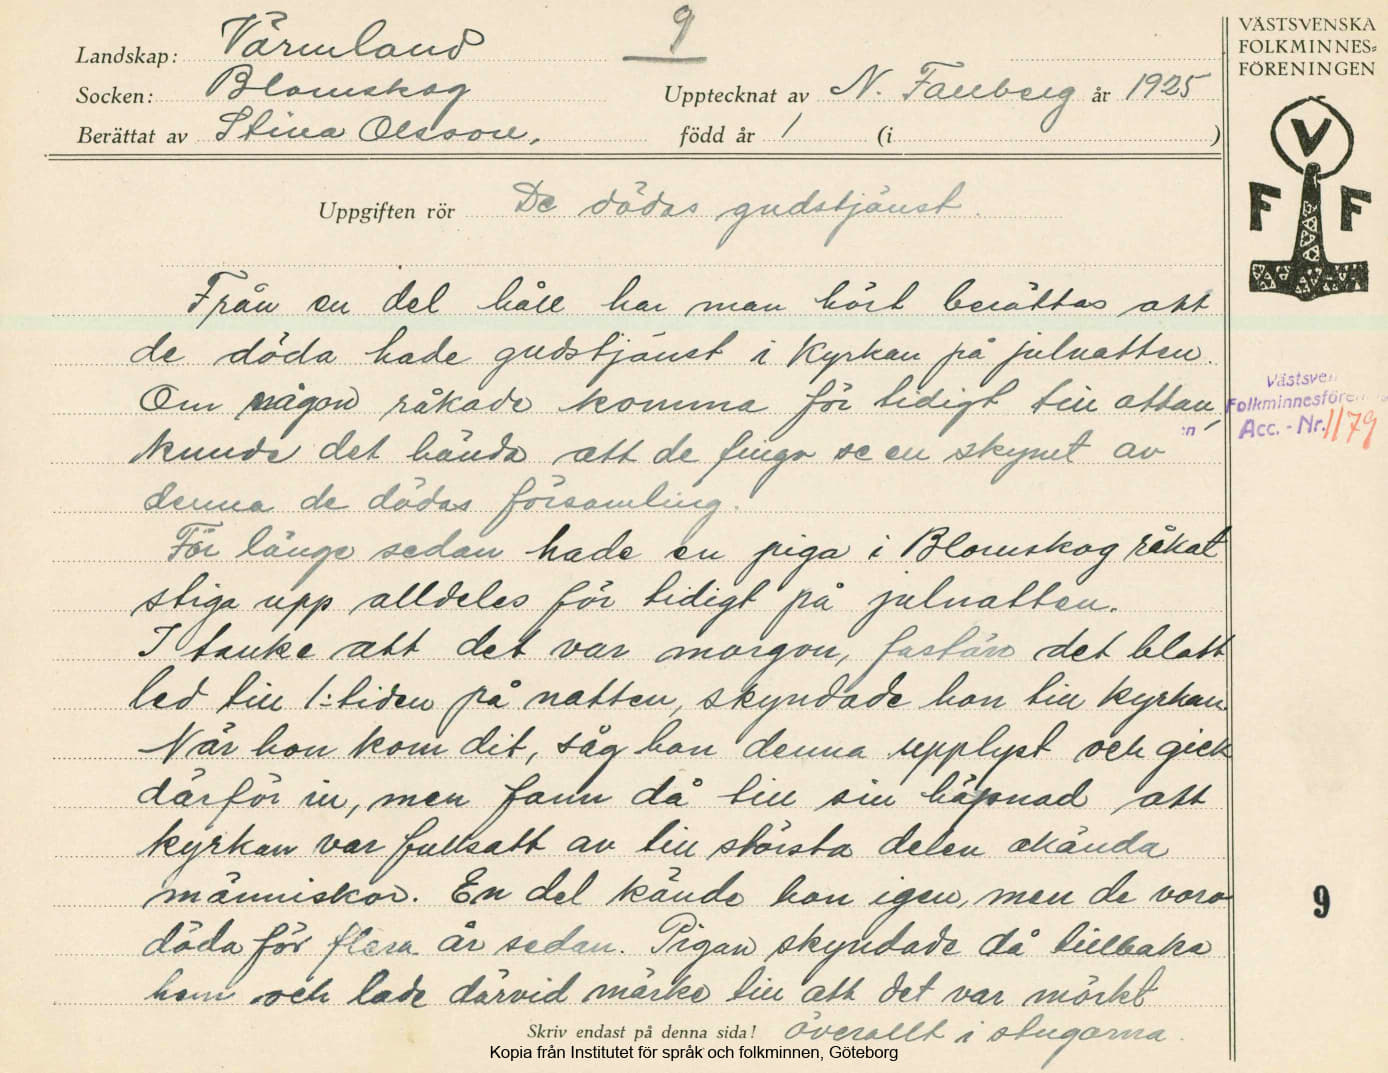 9
Landskap: Värmland
Socken: Blomskog
Upptecknat av N. Fahlberg år 1925
Berättat av Stina Olsson, född år / (i )
Uppgiften rör De dödas gudstjänst.
Från en del håll har man hört berättas att
de döda hade gudstjänst i kyrkan på julnatten.
Om någon råkade komma för tidigt till ottan,
kunde det hända att de finga se en skymt av
denna de dödas församling.
För länge sedan hade en piga i Blomskog råkat
stiga upp alldeles för tidigt på julnatten.
I tanke att det var morgon, fastän det blott
led till 1:tiden på natten, skyndade hon till kyrkan.
När hon kom dit, såg hon denna upplyst och gick
därför in, men fann då till sin häpnad att
kyrkan var fullsatt av till största delen okända
människor. En del kände hon igen, men de voro
döda för flera år sedan. Pigan skyndade då tillbaka
hem och lade därvid märke till att det var mörkt
överallt i stugorna.
Skriv endast på denna sida!
Kopia från Institutet för språk och folkminnen, Göteborg
VÄSTSVENSKA
FOLKMINNES=
FÖRENINGEN
V
F F
Västsven
Folkminnesförening
en
Acc. - Nr. 1179
9